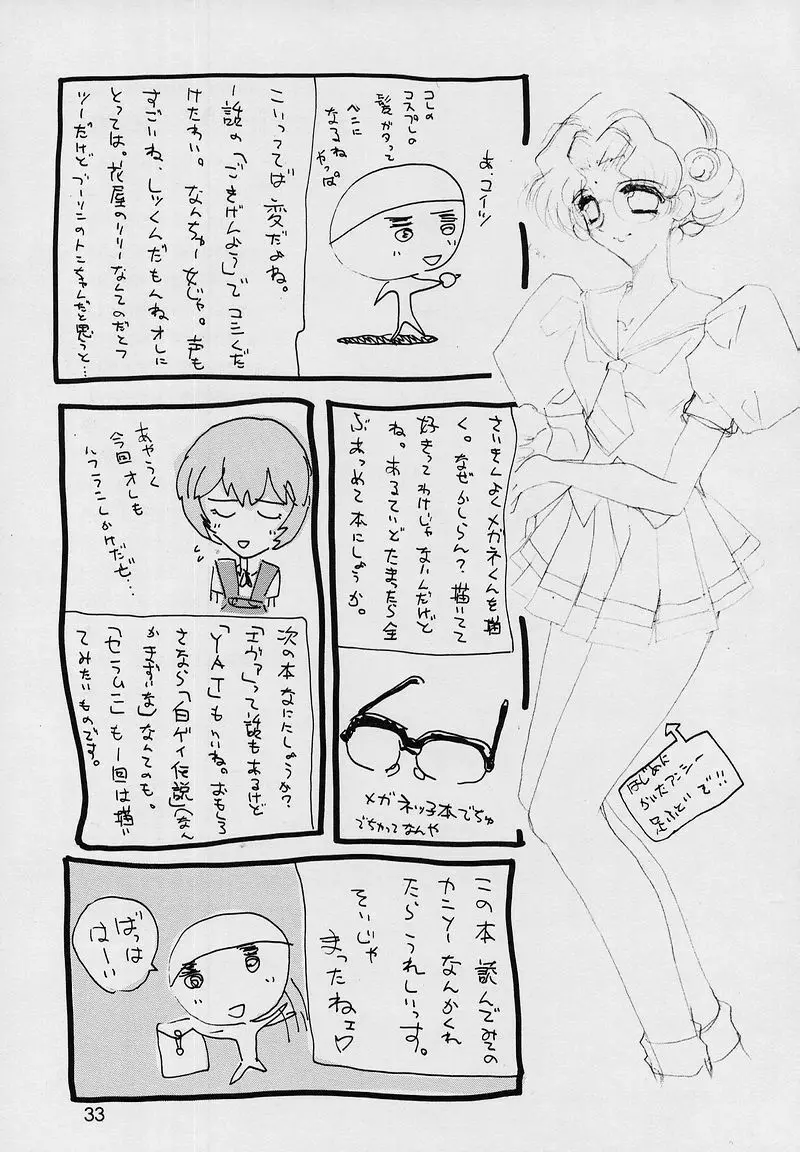 あ、コイツ
コレの
コスプレの
髪がタって
ベニに
なるね
やっぱ
こいってては変だよね。
一話の「ごきげんよう」でコミくだ
けたわい。なんちゅー女じゃ。声も
すごいね、しっくんだもんね オレに
とっては。花屋のリリーなんてのだとっ
ツーだけどブーリンのトンちゃんだと思うと…
さいきんよくメガネくんを描
く。なぜかしらん？描いてて
好きってわけじゃないんだけど
ね。あるていどたまったら全
ぶあつめて本にしょうか。
メガネッ子本でちゅ
でちかってなんや
あやうく
今回オレも
しかけだゼ…
次の本なににしょうか？
「エヴァ」って話もあるけど
「YAT」もいいね。おもしろ
さなら「白ゲイ伝説」（なん
かまずいな）なんてのも。
「セラムニ」も一回は描い
てみたいものです。
はじめに
がいたアンシー
足ふどいで!!
この本 読んでみての
カンソーなんかくれ
たらうれしいっす。
そいじゃ
まったねェ
ばっは
はーい
33